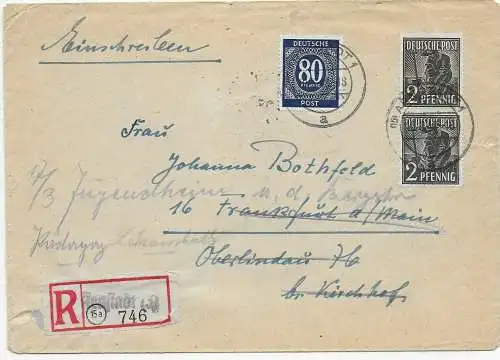 Einschreiben
DEUTSCHE
80
PFENNIG
POST
a
DEUTSCHE POST
2 PFENNIG
DEUTSCHE POST
2 PFENNIG
Frau
Johanna Bothfeld
17/3 Jugendheim a. d. Bergstr
16 Frankfurt a/Main
Pädagog.
Oberlindau 76
b. Kirchhof
R
15a
746